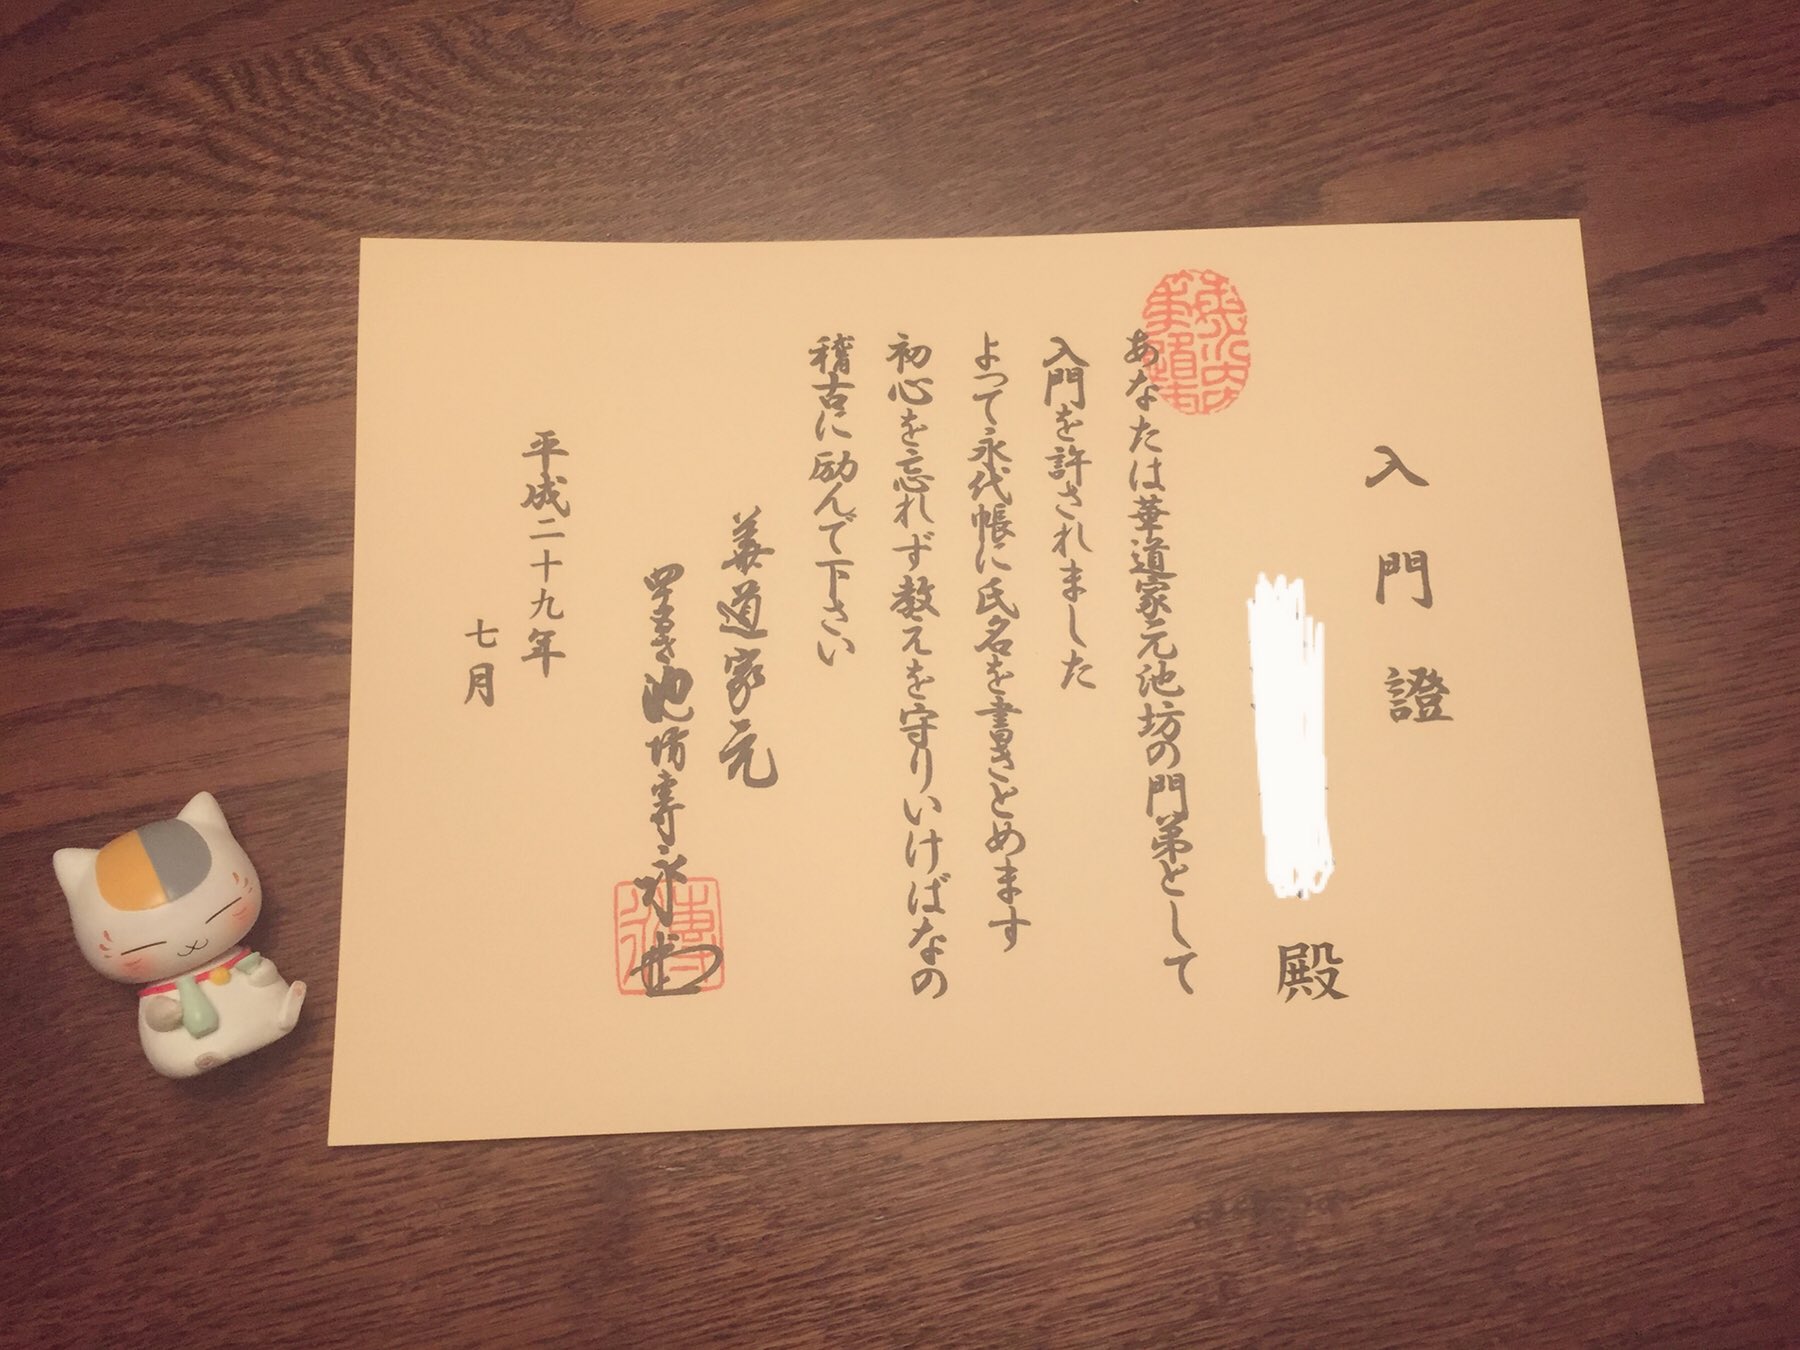 入門證
殿
あなたは華道家元池坊の門弟として
入門を許されました
よって永代帳に氏名を書きとめます
初心を忘れず教えを守りいけばなの
稽古に励んで下さい
華道家元
池坊専永
平成二十九年
七月